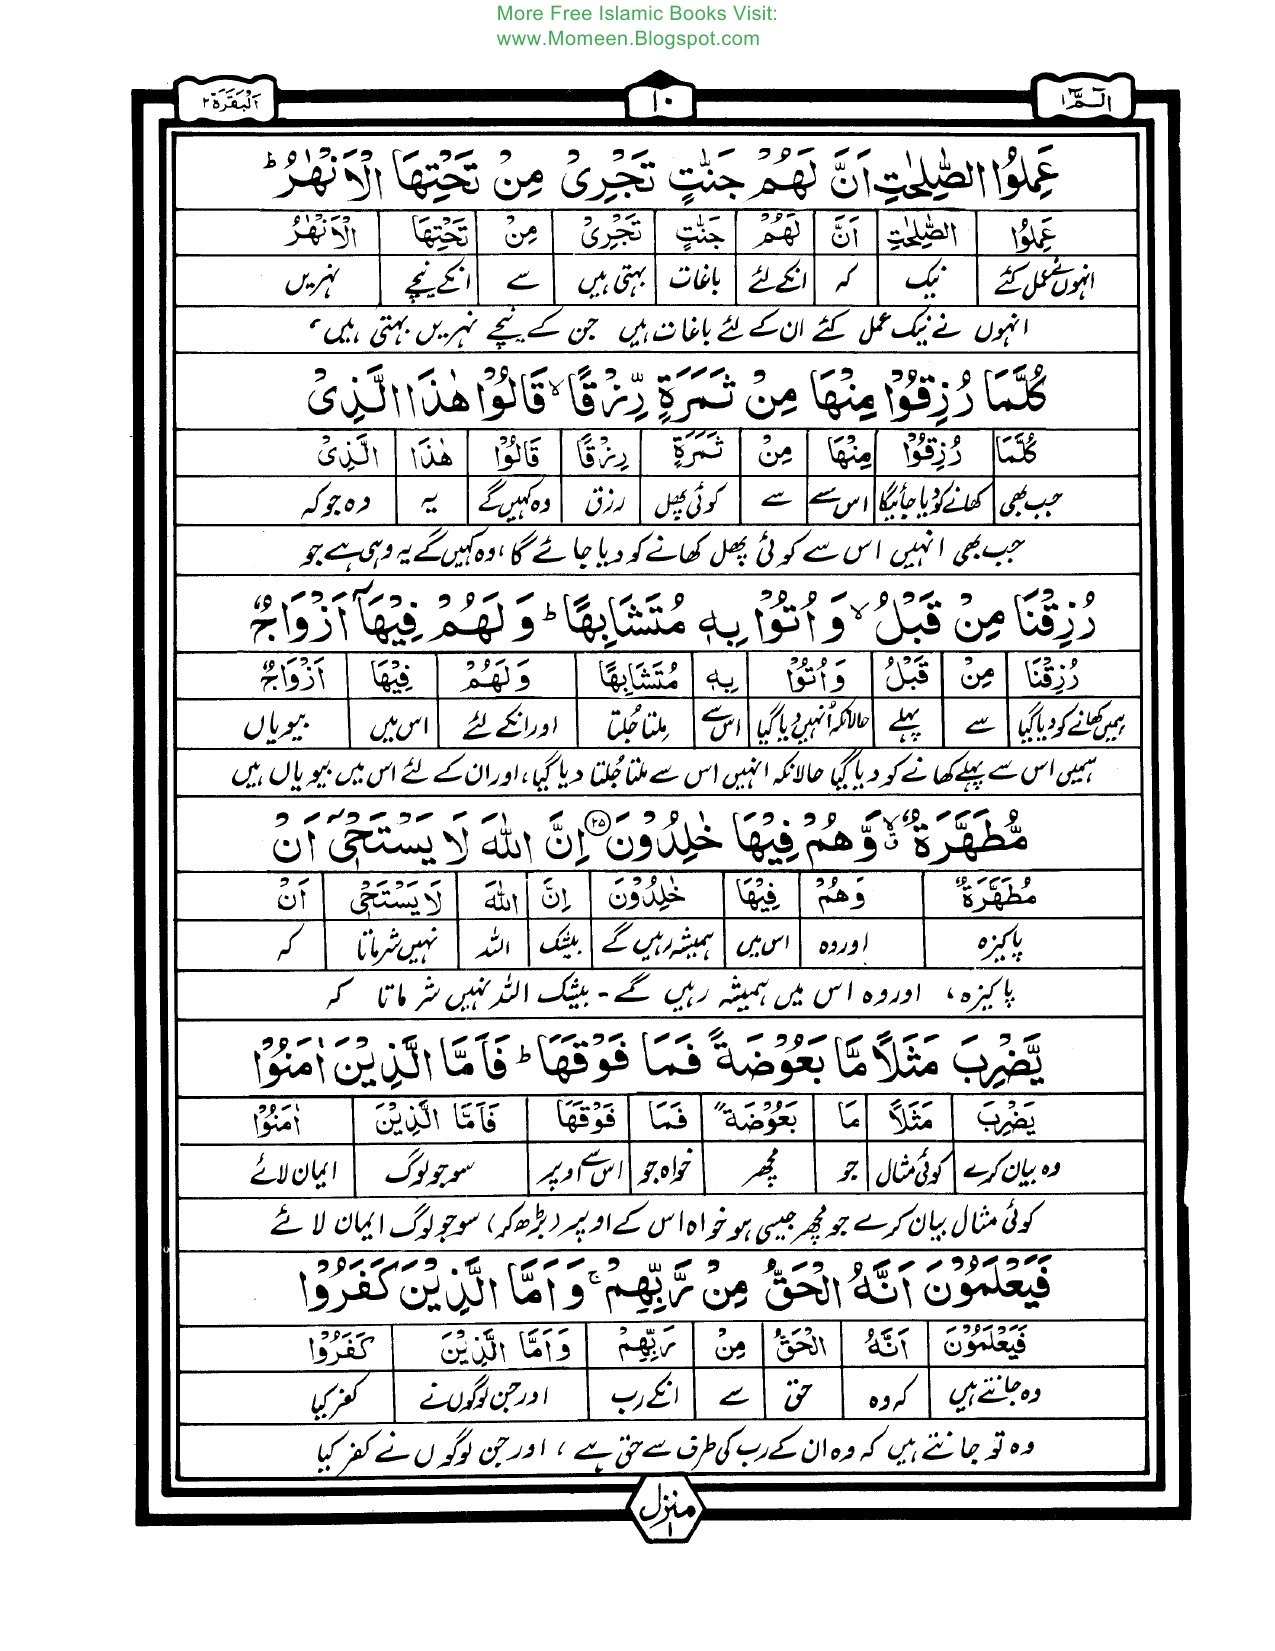 More Free Islamic Books Visit:
www.Momeen.Blogspot.com
الٓمّٓ ۱ ۱۰ اَلْبَقَرَة ۲
عَمِلُوا الصّٰلِحٰتِ اَنَّ لَهُمْ جَنّٰتٍ تَجْرِىْ مِنْ تَحْتِهَا الْاَنْهٰرُ ؕ
عَمِلُوا الصّٰلِحٰتِ اَنَّ لَهُمْ جَنّٰتٍ تَجْرِىْ مِنْ تَحْتِهَا الْاَنْهٰرُ
انہوں نے عمل کئے نیک کہ انکے لئے باغات بہتی ہیں سے انکے نیچے نہریں
انہوں نے نیک عمل کئے ان کے لئے باغات ہیں جن کے نیچے نہریں بہتی ہیں،
كُلَّمَا رُزِقُوْا مِنْهَا مِنْ ثَمَرَةٍ رِّزْقًا ۙ قَالُوْا هٰذَا الَّذِىْ
كُلَّمَا رُزِقُوْا مِنْهَا مِنْ ثَمَرَةٍ رِزْقًا قَالُوْا هٰذَا الَّذِىْ
جب بھی کھانے کو دیا جائیگا اس سے سے کوئی پھل رزق وہ کہیں گے یہ وہ جو کہ
جب بھی انہیں اس سے کوئی پھل کھانے کو دیا جائے گا، وہ کہیں گے یہ وہی ہے جو
رُزِقْنَا مِنْ قَبْلُ ۙ وَاُتُوْا بِهٖ مُتَشَابِهًا ؕ وَلَهُمْ فِيْهَآ اَزْوَاجٌ
رُزِقْنَا مِنْ قَبْلُ وَاُتُوْا بِهٖ مُتَشَابِهًا وَلَهُمْ فِيْهَا اَزْوَاجٌ
ہمیں کھانے کو دیا گیا سے پہلے حالانکہ اُنہیں دیا گیا اس سے ملتا جُلتا اور انکے لئے اس میں بیویاں
ہمیں اس سے پہلے کھانے کو دیا گیا حالانکہ انہیں اس سے ملتا جُلتا دیا گیا، اور ان کے لئے اس میں بیویاں ہیں
مُّطَهَّرَةٌ ۙ وَّهُمْ فِيْهَا خٰلِدُوْنَ ۲۵ اِنَّ اللّٰهَ لَا يَسْتَحْىٖٓ اَنْ
مُطَهَّرَةٌ وَهُمْ فِيْهَا خٰلِدُوْنَ اِنَّ اللّٰهَ لَا يَسْتَحْىٖ اَنْ
پاکیزہ اور وہ اس میں ہمیشہ رہیں گے بیشک اللہ نہیں شرماتا کہ
پاکیزہ، اور وہ اس میں ہمیشہ رہیں گے۔ بیشک اللہ نہیں شرماتا کہ
يَّضْرِبَ مَثَلًا مَّا بَعُوْضَةً فَمَا فَوْقَهَا ؕ فَاَمَّا الَّذِيْنَ اٰمَنُوْا
يَضْرِبَ مَثَلًا مَا بَعُوْضَةً فَمَا فَوْقَهَا فَاَمَّا الَّذِيْنَ اٰمَنُوْا
وہ بیان کرے کوئی مثال جو مچھر خواہ جو اس سے اوپر سو جو لوگ ایمان لائے
کوئی مثال بیان کرے جو مچھر جیسی ہو خواہ اس کے اوپر (بڑھ کر) سو جو لوگ ایمان لائے
فَيَعْلَمُوْنَ اَنَّهُ الْحَقُّ مِنْ رَّبِّهِمْ ۚ وَاَمَّا الَّذِيْنَ كَفَرُوْا
فَيَعْلَمُوْنَ اَنَّهُ الْحَقُّ مِنْ رَبِّهِمْ وَاَمَّا الَّذِيْنَ كَفَرُوْا
وہ جانتے ہیں کہ وہ حق سے انکے رب اور جن لوگوں نے کفر کیا
وہ تو جانتے ہیں کہ وہ ان کے رب کی طرف سے حق ہے، اور جن لوگوں نے کفر کیا
منزل ۱